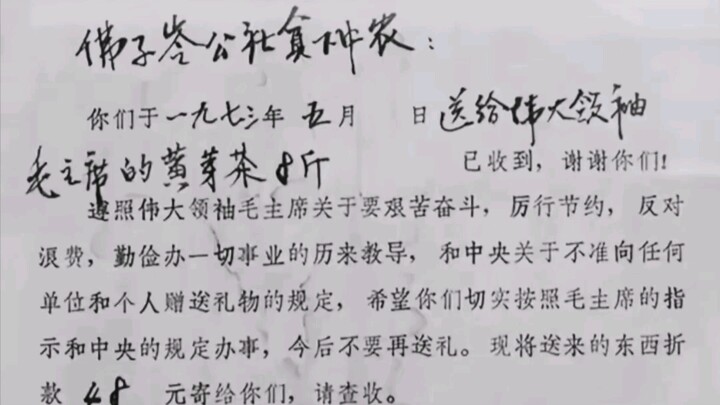 佛子岺公社貧下中农：
你们于一九七三年 五月 日送给伟大领袖
毛主席的黄芽茶8斤 已收到，谢谢你们！
遵照伟大领袖毛主席关于要艰苦奋斗，厉行节约，反对
浪费，勤俭办一切事业的历来教导，和中央关于不准向任何
单位和个人赠送礼物的规定，希望你们切实按照毛主席的指
示和中央的规定办事，今后不要再送礼。现将送来的东西折
款 48 元寄给你们，请查收。